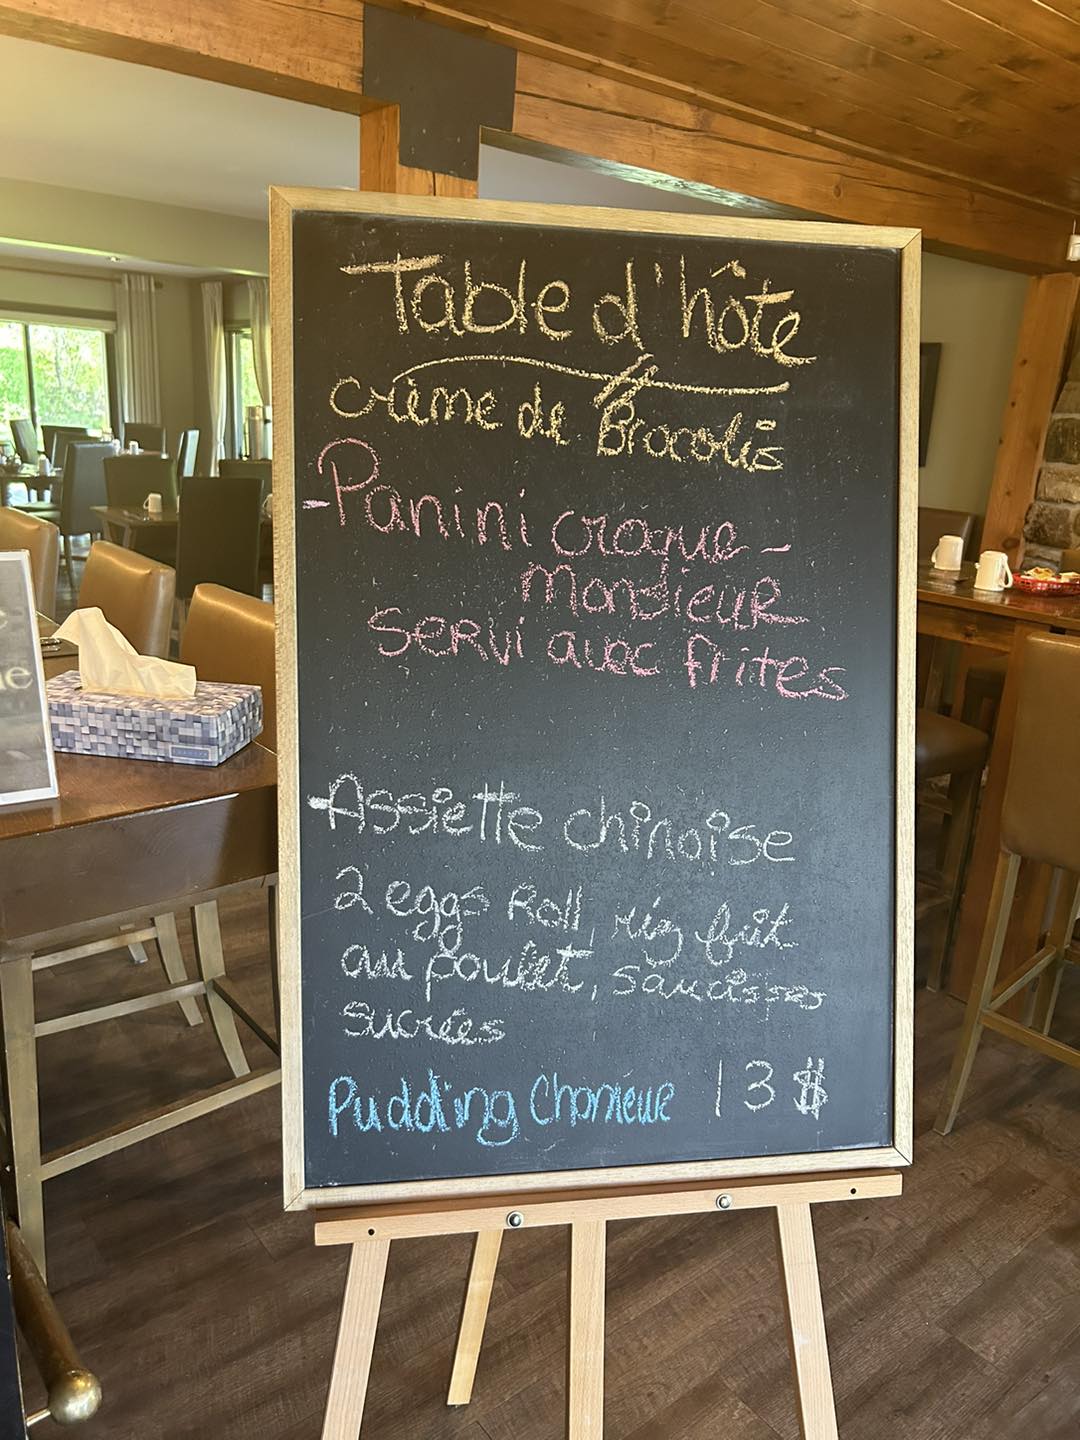 Table d'hôte
crème de Brocolis
-Panini croque-
monsieur
servi avec frites
-Assiette chinoise
2 eggs Roll, riz frit
au poulet, saucisses
sucrées
Pudding Chomeur 13 $